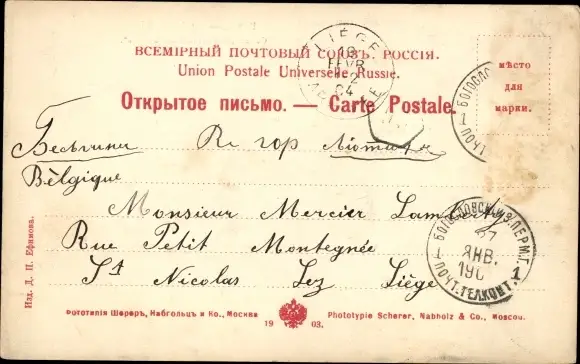 ВСЕМІРНЫЙ ПОЧТОВЫЙ СОЮЗЪ. РОССІЯ.
Union Postale Universelle Russie.
Открытое письмо. — Carte Postale.
мѣсто
для
марки.
LIÉGE
10
FEVR
2
04
БОГОСЛО
ПОЧТ
Бельгии
въ гор
Bèlgique
Monsieur Mercier
Rue Petit Montegnée
St Nicolas Lez Liège
БОГОСЛОВСК. ЗАВ. ПЕРМ. Г.
27
ЯНВ.
190
1 ПОЧТ. ТЕЛ. КОНТ. 1
Изд. Д. П. Ефимова.
Фототипія Шереръ, Набгольцъ и Ко., Москва
19 03.
Phototypie Scherer, Nabholz & Co., Moscou.